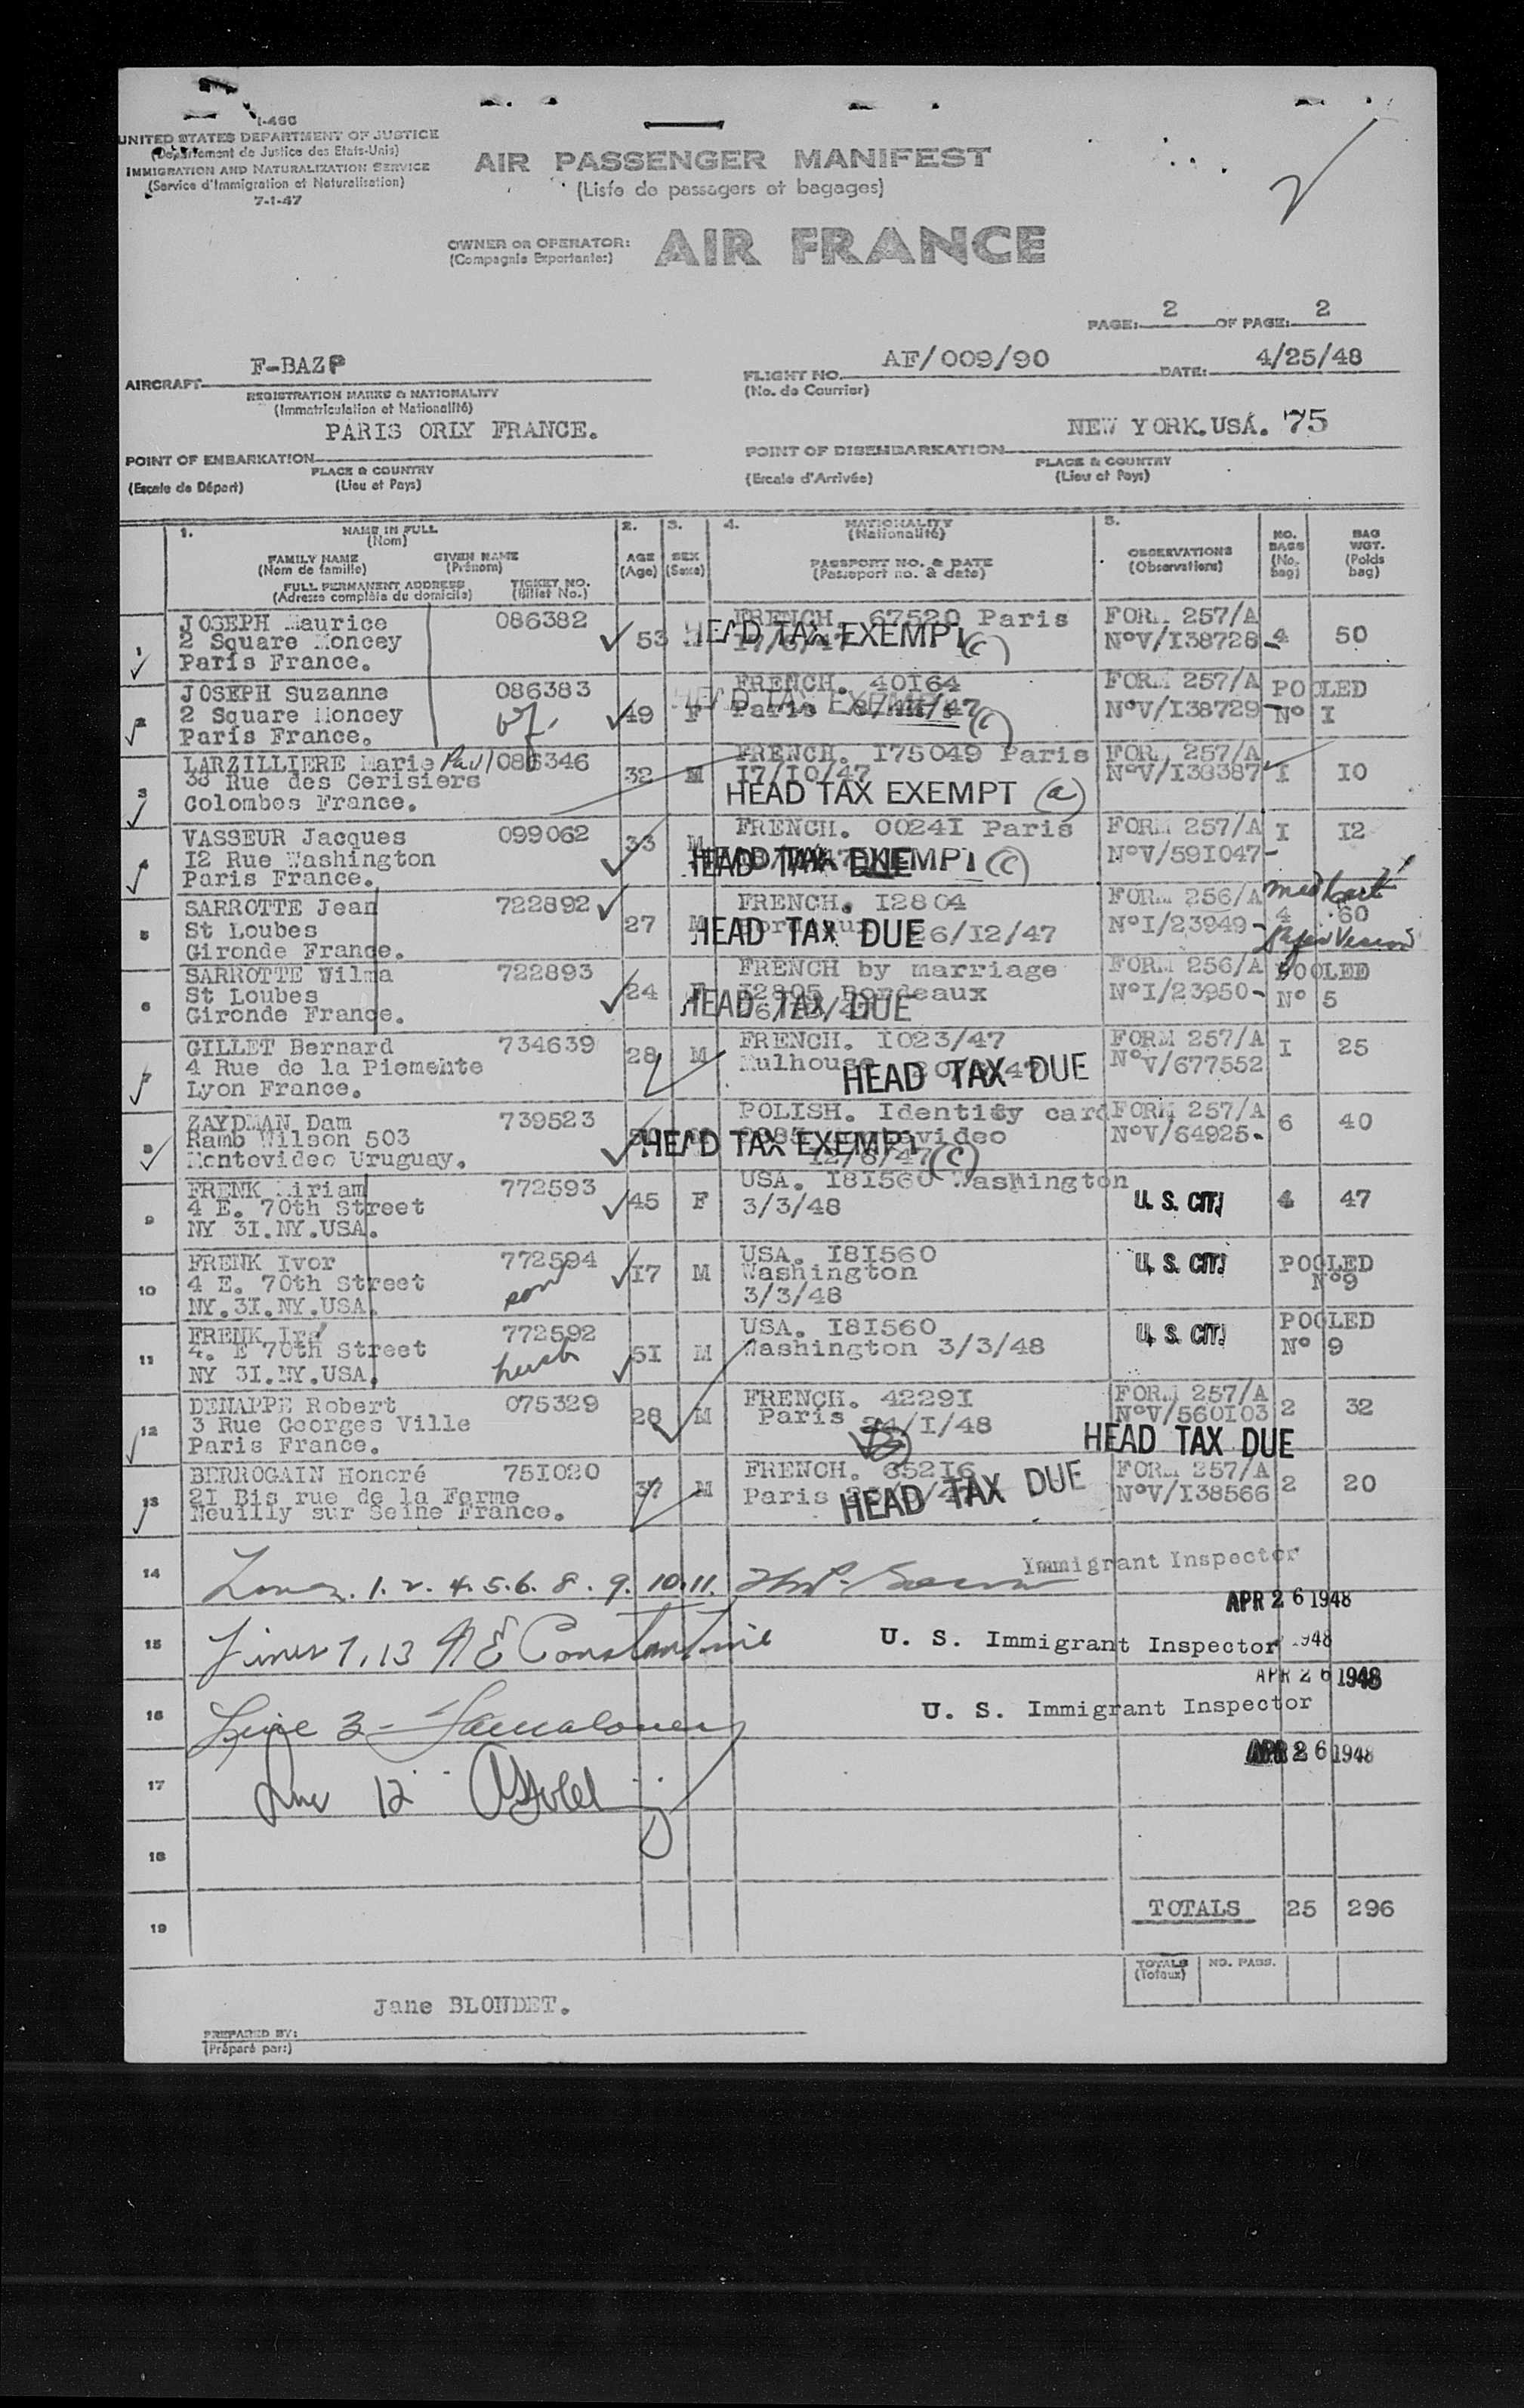 I-466
UNITED STATES DEPARTMENT OF JUSTICE
(Departement de Justice des Etats-Unis)
IMMIGRATION AND NATURALIZATION SERVICE
(Service d'Immigration et Naturalisation)
7-1-47
AIR PASSENGER MANIFEST
(Liste de passagers et bagages)
OWNER OR OPERATOR:
(Compagnie Exportante:)
AIR FRANCE
PAGE: 2 OF PAGE: 2
AIRCRAFT F-BAZP
REGISTRATION MARKS & NATIONALITY
(Immatriculation et Nationalité)
FLIGHT NO. AF/009/90 DATE: 4/25/48
(No. de Courrier)
PARIS ORLY FRANCE.
POINT OF EMBARKATION
PLACE & COUNTRY
(Escale de Départ) (Lieu et Pays)
NEW YORK.USA. 75
POINT OF DISEMBARKATION
PLACE & COUNTRY
(Escale d'Arrivée) (Lieu et Pays)
1. NAME IN FULL
(Nom)
FAMILY NAME GIVEN NAME
(Nom de famille) (Prénom)
FULL PERMANENT ADDRESS TICKET NO.
(Adresse complète du domicile) (Billet No.)
2. AGE
(Age)
3. SEX
(Sexe)
4. NATIONALITY
(Nationalité)
PASSPORT NO. & DATE
(Passeport no. & date)
5. OBSERVATIONS
(Observations)
NO. BAGS
(No. bag)
BAG WGT.
(Poids bag)
1 JOSEPH Maurice 086382 53 FRENCH. 67520 Paris FORM 257/A
2 Square Moncey HEAD TAX EXEMPT (c) N°V/I38728 4 50
Paris France.
2 JOSEPH Suzanne 086383 49 F FRENCH. 40I64 FORM 257/A POOLED
2 Square Moncey wf. HEAD TAX EXEMPT (c) Paris N°V/I38729 N° I
Paris France.
3 LARZILLIERE Marie Paul 086346 32 M FRENCH. I75049 Paris FORM 257/A
33 Rue des Cerisiers I7/I0/47 N°V/I38387 I I0
Colombes France. HEAD TAX EXEMPT (a)
4 VASSEUR Jacques 099062 33 M FRENCH. 0024I Paris FORM 257/A I I2
I2 Rue Washington HEAD TAX EXEMPT (c) N°V/59I047
Paris France.
5 SARROTTE Jean 722892 27 M FRENCH. I2804 FORM 256/A
St Loubes HEAD TAX DUE 26/I2/47 N°I/23949 4 60
Gironde France.
6 SARROTTE Wilma 722893 24 F FRENCH by marriage FORM 256/A POOLED
St Loubes I2805 Bordeaux N°I/23950 N° 5
Gironde France. HEAD TAX DUE
7 GILLET Bernard 734639 28 M FRENCH. I023/47 FORM 257/A I 25
4 Rue de la Piemente Mulhouse N°V/677552
Lyon France. HEAD TAX DUE
8 ZAYDMAN Dam 739523 POLISH. Identity card FORM 257/A 6 40
Ramb Wilson 503 HEAD TAX EXEMPT (c) N°V/64925
Montevideo Uruguay. I2/6/47
9 FRENK Miriam 772593 45 F USA. I8I560 Washington
4 E. 70th Street 3/3/48 U. S. CIT. 4 47
NY 3I.NY.USA.
10 FRENK Ivor 772594 I7 M USA. I8I560 U. S. CIT. POOLED
4 E. 70th Street son Washington N°9
NY.3I.NY.USA. 3/3/48
11 FRENK Ira 772592 5I M USA. I8I560 U. S. CIT. POOLED
4. E 70th Street husb Washington 3/3/48 N° 9
NY 3I.NY.USA.
12 DENAPPE Robert 075329 28 M FRENCH. 4229I FORM 257/A
3 Rue Georges Ville Paris 24/I/48 N°V/560I03 2 32
Paris France. HEAD TAX DUE
13 BERROGAIN Honoré 75I020 37 M FRENCH. 652I6 FORM 257/A
2I Bis rue de la Ferme Paris N°V/I38566 2 20
Neuilly sur Seine France. HEAD TAX DUE
14 Lines. 1. 2. 4. 5. 6. 8. 9. 10. 11. Immigrant Inspector
APR 26 1948
15 Lines 7, 13 N E Constantine U. S. Immigrant Inspector 1948
APR 26 1948
16 Line 3 - U. S. Immigrant Inspector
APR 26 1948
17 Line 12
18
19 TOTALS 25 296
TOTALS
(Totaux)
NO. PASS.
Jane BLONDET.
PREPARED BY:
(Préparé par:)